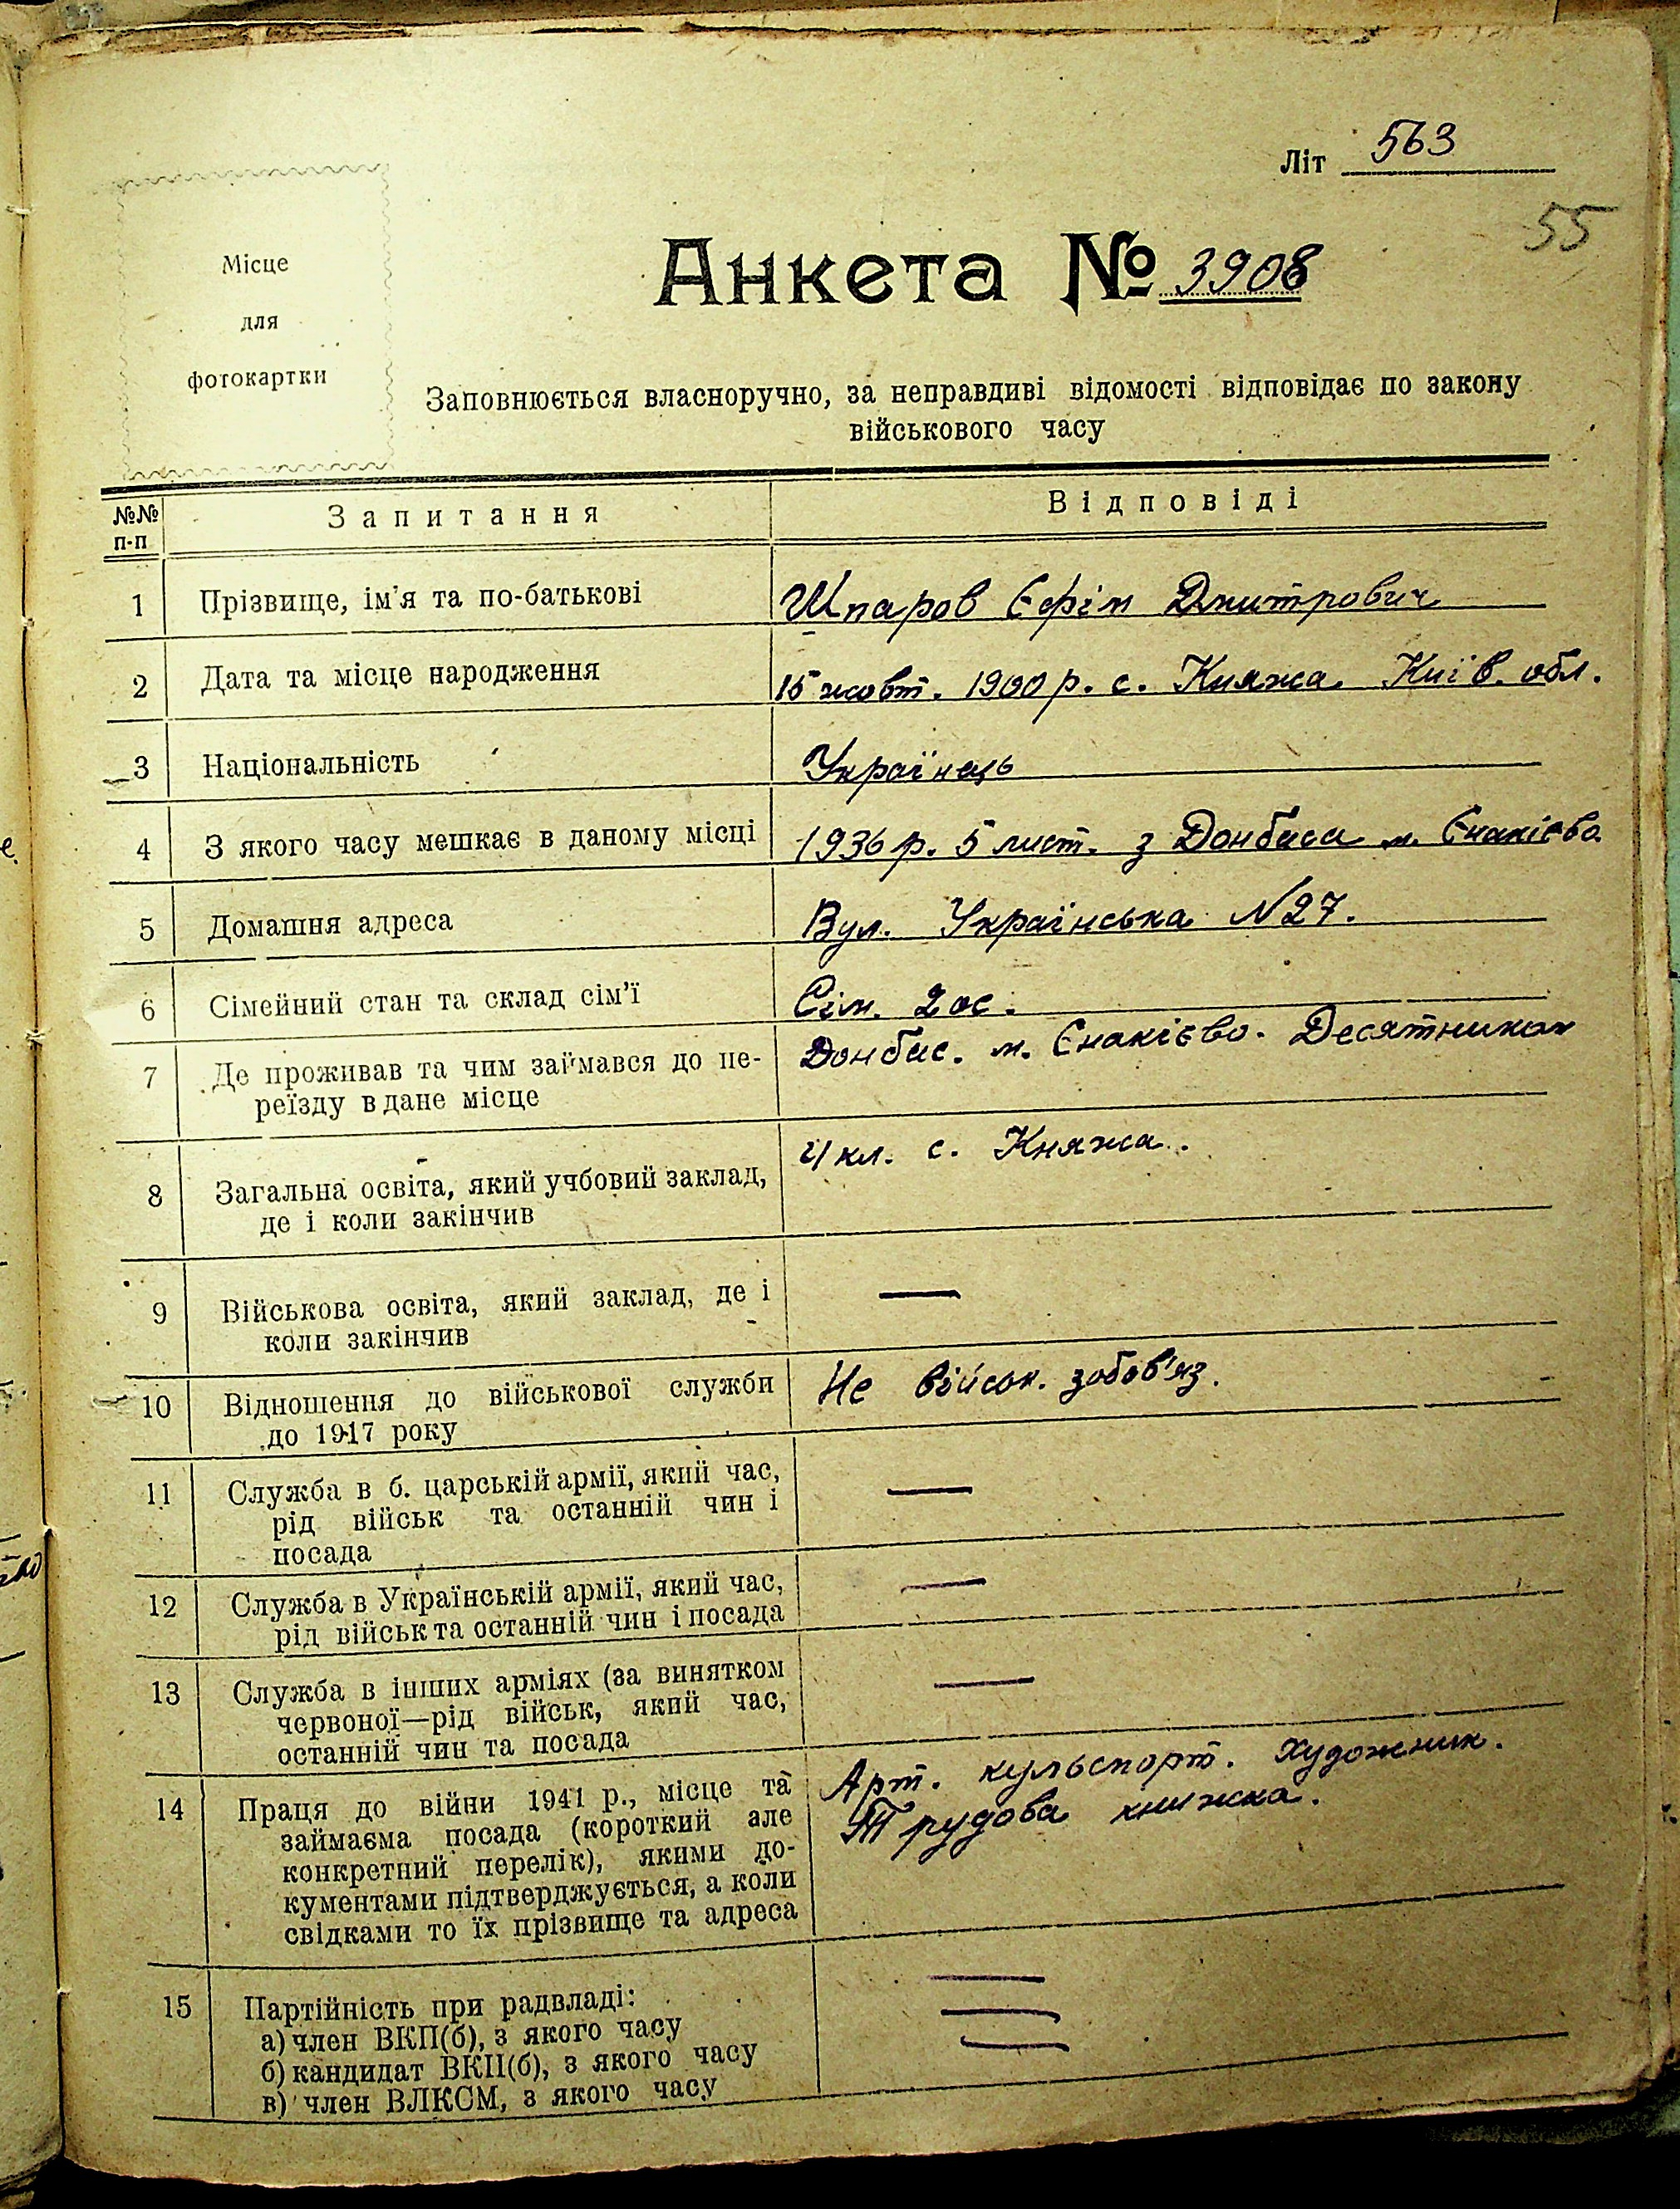 Літ 563
55
Місце
для
фотокартки
Анкета № 3908
Заповнюється власноручно, за неправдиві відомості відповідає по закону
військового часу
№№
п-п
Запитання
Відповіді
1 Прізвище, ім'я та по-батькові Шпаров Єфім Дмитрович
2 Дата та місце народження 15 жовт. 1900 р. с. Княжа Київ. обл.
3 Національність Українець
4 З якого часу мешкає в даному місці 1936 р. 5 лист. з Донбаса м. Єнакієво
5 Домашня адреса Вул. Українська N27.
6 Сімейний стан та склад сім'ї Сім. 2 ос.
7 Де проживав та чим займався до пе- Донбас. м. Єнакієво. Десятником
реїзду в дане місце
8 Загальна освіта, який учбовий заклад, 4 кл. с. Княжа.
де і коли закінчив
9 Військова освіта, який заклад, де і —
коли закінчив
10 Відношення до військової служби Не військ. зобов'яз.
до 1917 року
11 Служба в б. царській армії, який час, —
рід військ та останній чин і
посада
12 Служба в Українській армії, який час, —
рід військ та останній чин і посада
13 Служба в інших арміях (за винятком —
червоної—рід військ, який час,
останній чин та посада
14 Праця до війни 1941 р., місце та Арт. культспорт. Художник.
займаєма посада (короткий але Трудова книжка.
конкретний перелік), якими до-
кументами підтверджується, а коли
свідками то їх прізвище та адреса
15 Партійність при радвладі: —
а) член ВКП(б), з якого часу —
б) кандидат ВКП(б), з якого часу —
в) член ВЛКСМ, з якого часу